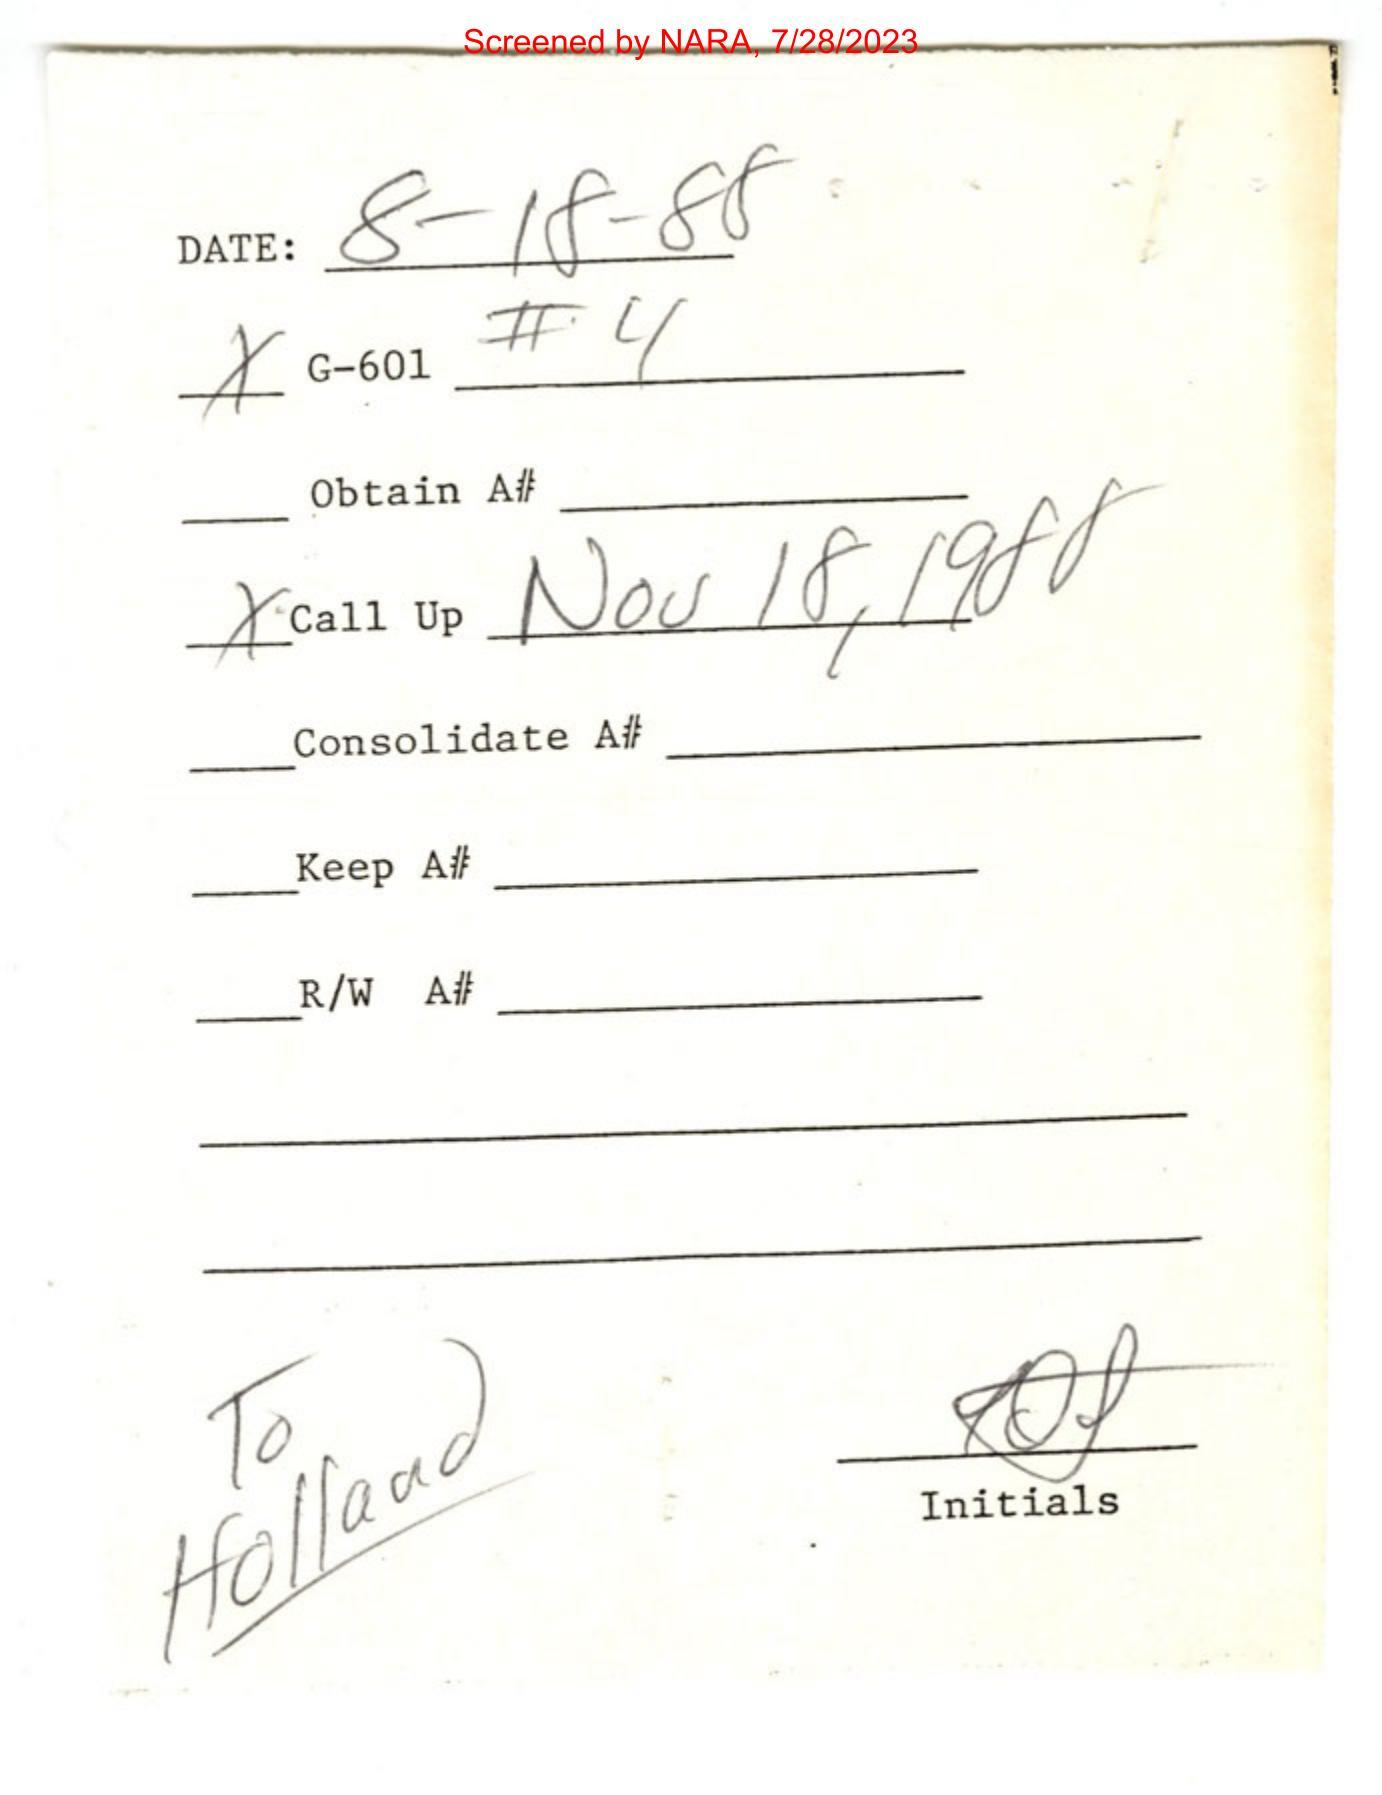 Screened by NARA, 7/28/2023
DATE: 8-18-88
X G-601 # 4
Obtain A#
X Call Up Nov 18, 1988
Consolidate A#
Keep A#
R/W A#
To
Holland
Initials